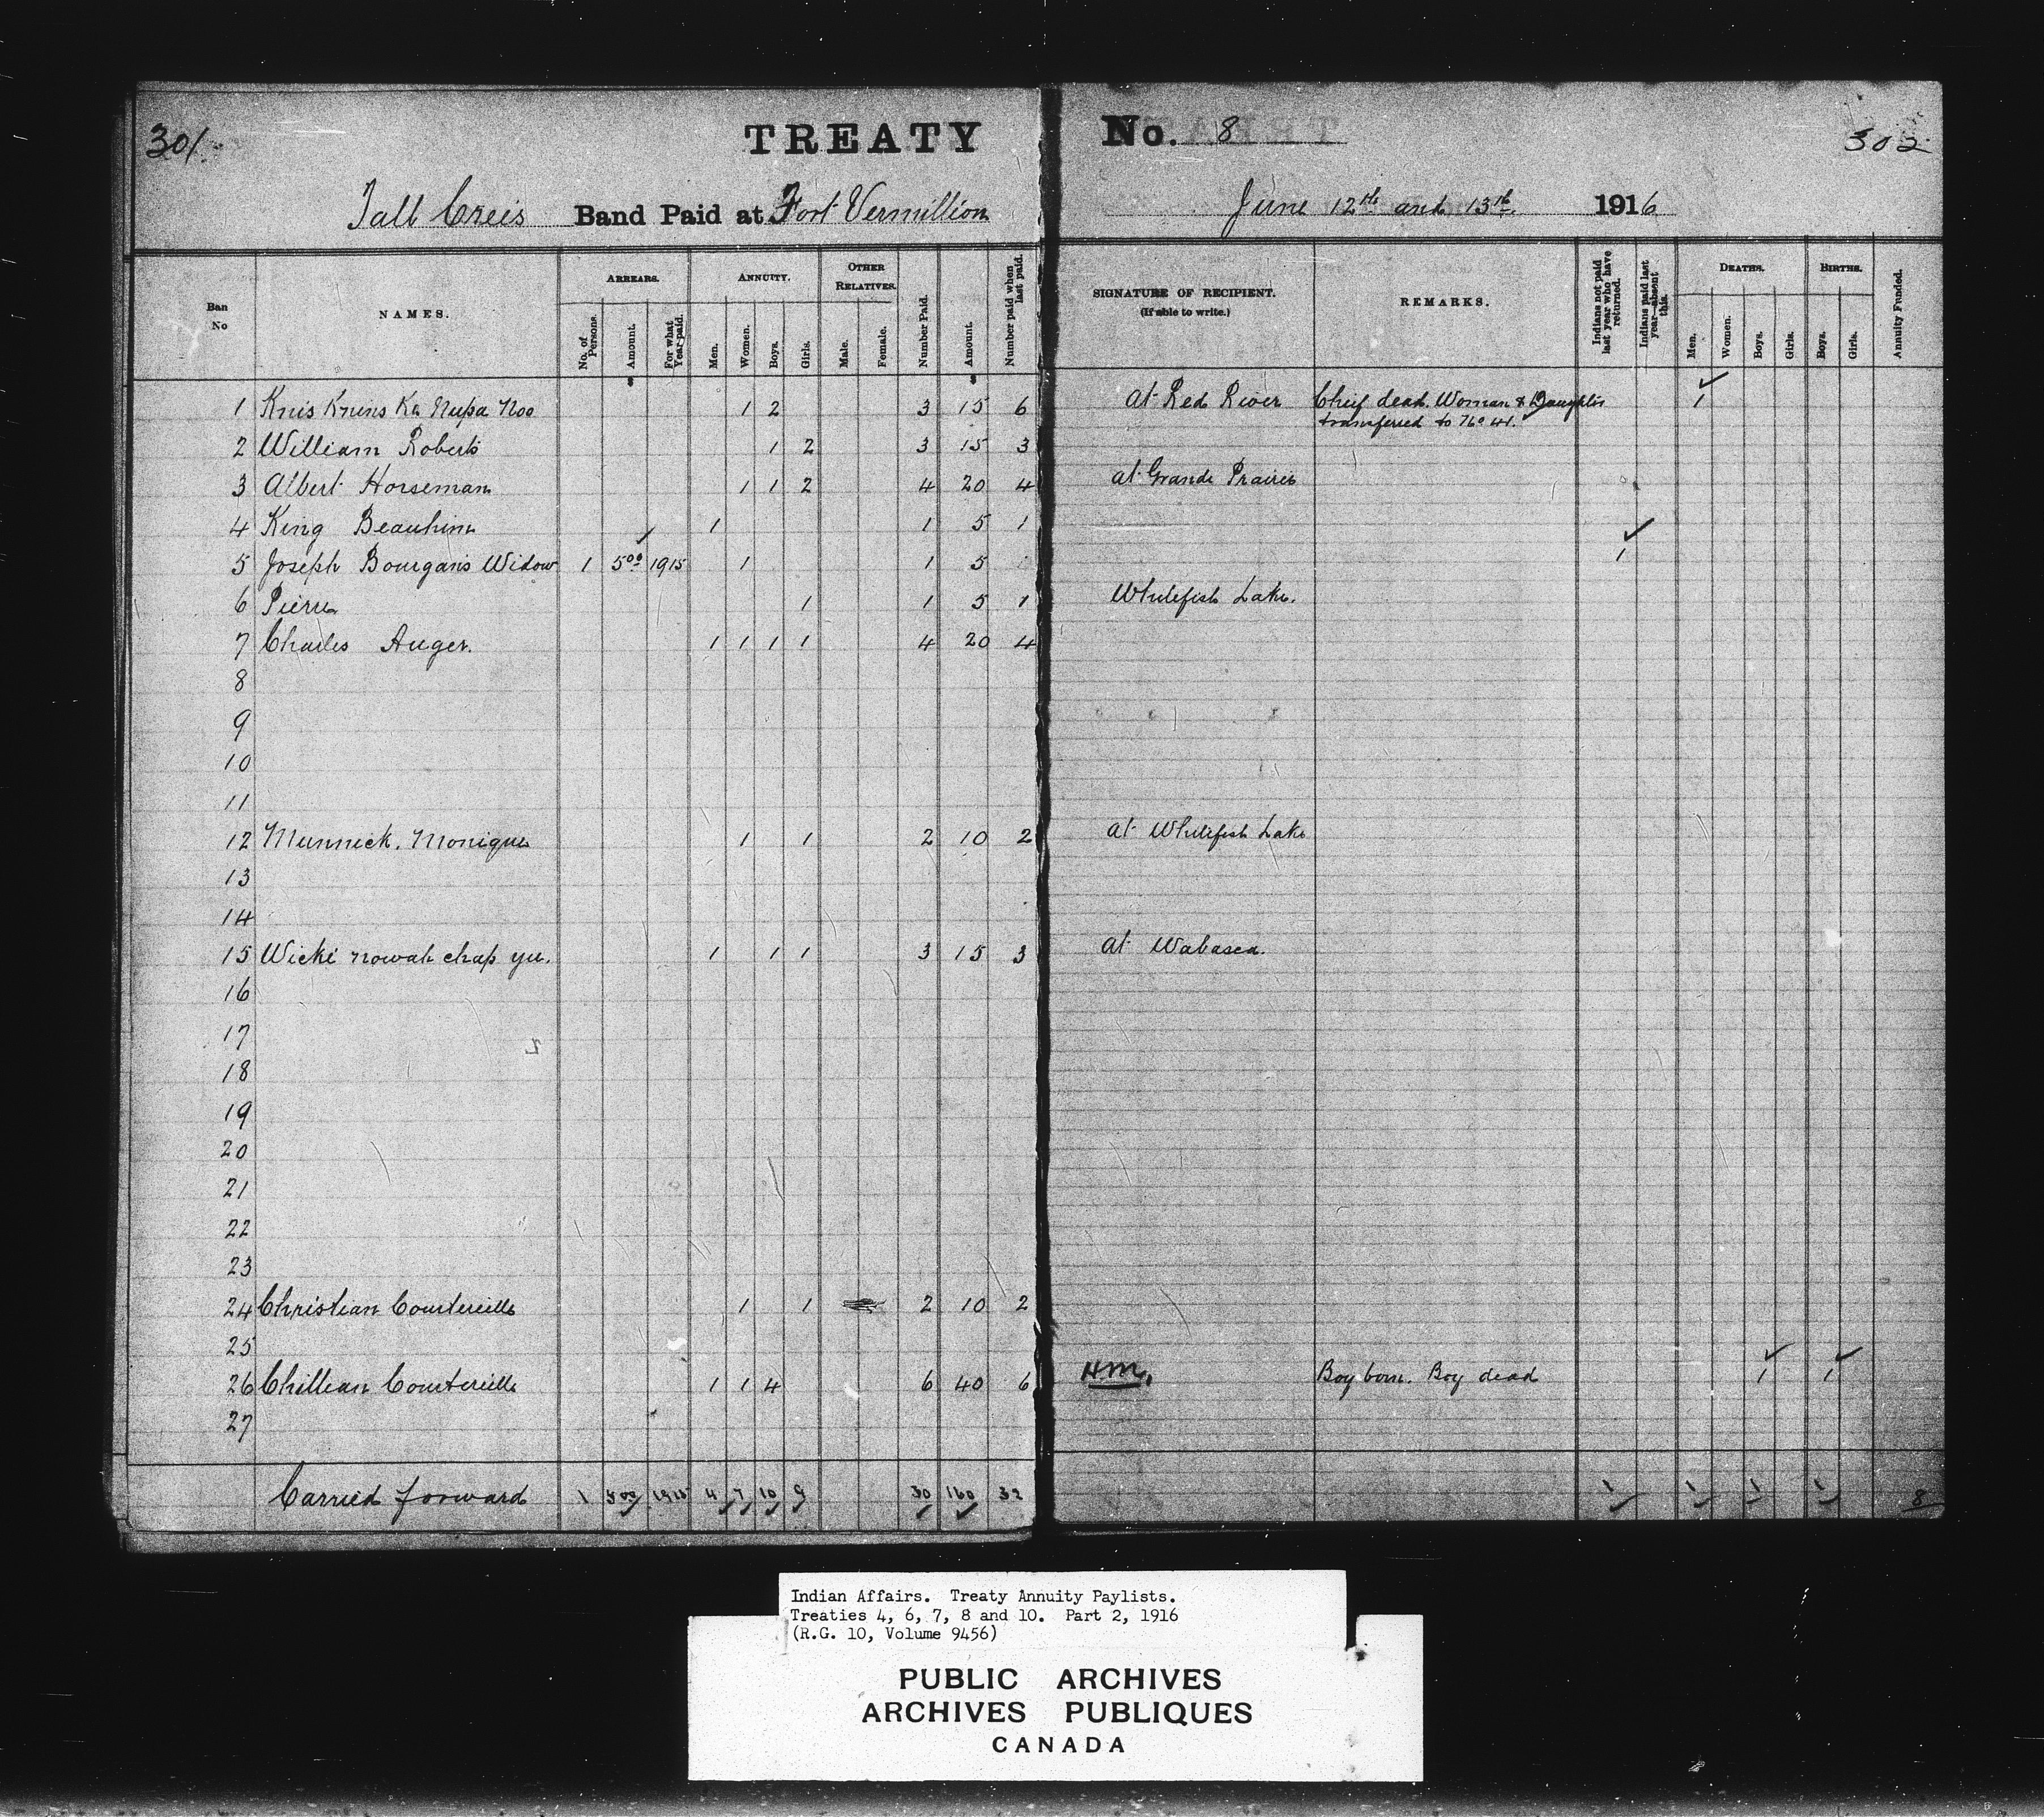 301
TREATY No. 8
302
Tall Crees Band Paid at Fort Vermillion June 12th and 13th 1916
Ban No
NAMES.
ARREARS.
No. of Persons.
Amount.
For what Year paid.
ANNUITY.
Men.
Women.
Boys.
Girls.
OTHER RELATIVES.
Male.
Female.
Number Paid.
Amount.
Number paid when last paid.
SIGNATURE OF RECIPIENT.
(If able to write.)
REMARKS.
Indians not paid last year who have returned.
Indians paid last year—absent this.
DEATHS.
Men.
Women.
Boys.
Girls.
BIRTHS.
Boys.
Girls.
Annuity Funded.
1 Knis Knens Ka Nupa Noo 1 2 3 15 6 At Red River Chief dead. Woman & Daughter 1
transferred to No 41.
2 William Roberts 1 2 3 15 3
3 Albert Horseman 1 1 2 4 20 4 at Grande Prairie
4 King Beauhim 1 1 5 1
5 Joseph Bourgans Widow 1 5 00 1915 1 1 5 1
6 Pierre 1 1 5 1 Whitefish Lake.
7 Charles Auger. 1 1 1 1 4 20 4
8
9
10
11
12 Munnick. Monique 1 1 2 10 2 at Whitefish Lake
13
14
15 Wicke nowah chap yu. 1 1 1 3 15 3 at Wabasca.
16
17
18
19
20
21
22
23
24 Christian Courtereille 1 1 2 10 2
25
26 Chillian Courtereille 1 1 4 6 40 6 H.M. Boy born. Boy dead 1 1
27
Carried forward 1 5 00 1915 4 7 10 9 30 160 32 1 1 1 1 8
Indian Affairs. Treaty Annuity Paylists.
Treaties 4, 6, 7, 8 and 10. Part 2, 1916
(R.G. 10, Volume 9456)
PUBLIC ARCHIVES
ARCHIVES PUBLIQUES
CANADA